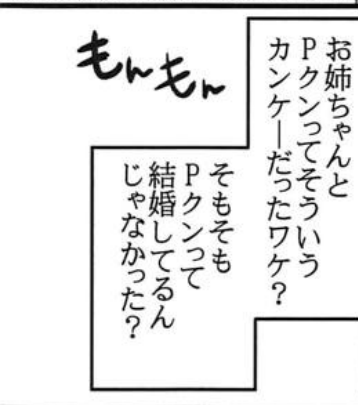 お姉ちゃんと
Pクンってそういう
カンケーだったワケ？
もんもん
そもそも
Pクンって
結婚してるん
じゃなかった？